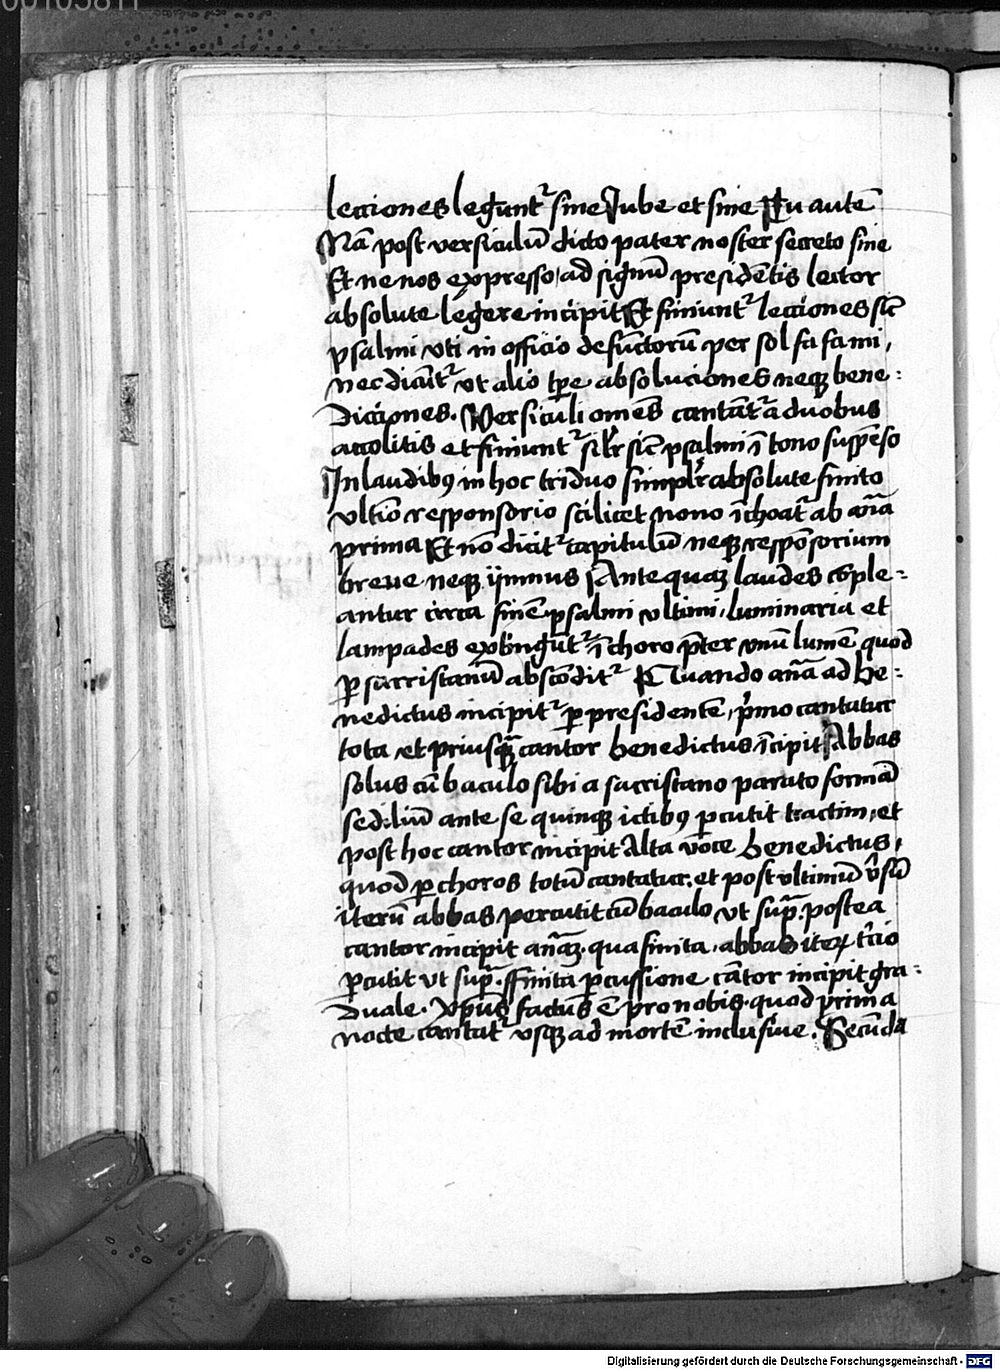 lecciones legunt᷑ sine Jube et sine Tu autē
Nā post versiculū dicto pater noster secreto sine
Et ne nos expresso, ad signū presidētis lector
absolute legere incipit Et finiunt᷑ lecciones sic̄
psalmi vti in officio defūctorū per sol fa fa mi,
nec dicūt᷑ vt alio tp̄e absoluciones neqꝫ bene:
Dicciones. Versiculi om̄es cantāt᷑ a duobus
accolitis et finiunt᷑ silr̄ sic̄ psalmi ī tono suspēso
In laudibꝯ in hoc triduo simplr̄ absolute finito
vltīo responsorio scilicet nono īchoat᷑ ab an̄a
prima Et nō dicit᷑ capitulū neqꝫ respōsorium
breue neqꝫ ijmnus Ante quaꝫ laudes cōple:
antur circa finē psalmi vltimi, luminaria et
lampades extīgūt᷑ ī choro p̄ter vnū lumē quod
ꝑ sacristanū abscōdit᷑ Quando an̄a ad be:
nedictus incipit᷑ ꝑ presidentē, p̄mo cantatur
tota et priusqꝫ̄ cantor benedictus īcipit Abbas
solus cū baculo sibi a sacristano parato formā
sediliū ante se quinqꝫ ictibꝯ ꝑcutit tractim, et
post hoc cantor incipit alta voce benedictus,
quod ꝑ choros totū cantatur. et post vltimū v̄sū
iterū abbas percutit cū baculo vt sup̄. postea
cantor incipit an̄aꝫ. qua finita, abbas iteꝝ t̄cio
ꝑcutit vt sup̄. ffinita ꝑcussione cātor incipit gra:
Duale. xp̄us factus ē pro nobis. quod prima
nocte cantat᷑ vsqꝫ ad mortē inclusiue. Secūda
Digitalisierung gefördert durch die Deutsche Forschungsgemeinschaft - DFG